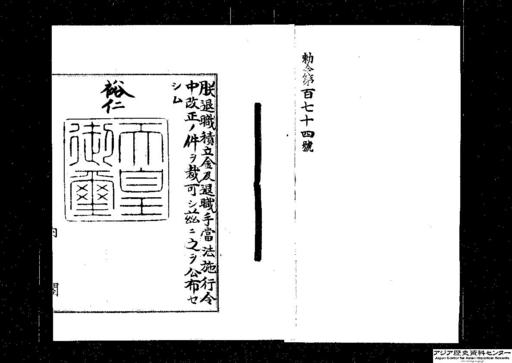 勅令第百七十四號
朕退職積立金及退職手當法施行令
中改正ノ件ヲ裁可シ茲ニ之ヲ公布セ
シム
裕仁
天皇
御璽
内閣
アジア歴史資料センター
Japan Center for Asian Historical Records